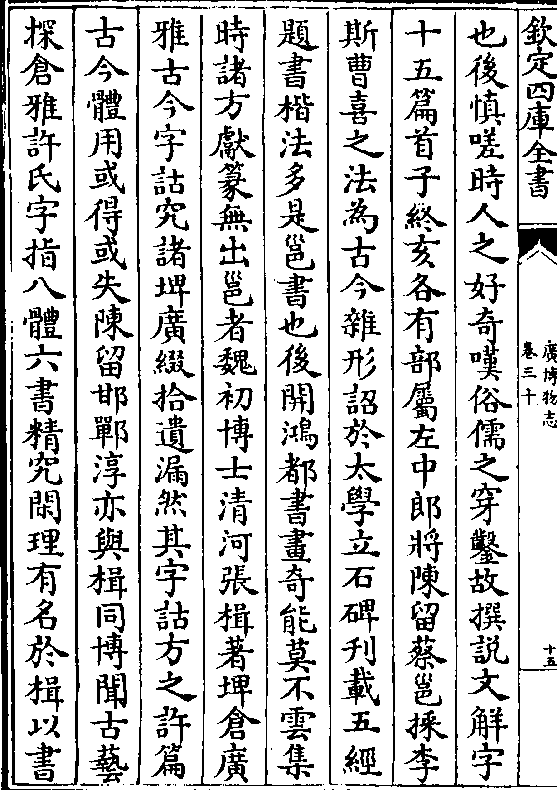 欽定四庫全書
廣博物志
卷三十
十五
也後慎嗟時人之好奇嘆俗儒之穿鑿故撰説文解字
十五篇首子終亥各有部屬左中郎將陳留蔡邕採李
斯曹喜之法為古今雜形詔於太學立石碑刋載五經
題書楷法多是邕書也後開鴻都書畫竒能莫不雲集
時諸方獻篆無出邕者魏初博士清河張楫著埤倉廣
雅古今字詁究諸埤廣綴拾遺漏然其字詁方之許篇
古今體用或得或失陳留邯鄲淳亦與楫同博聞古藝
探倉雅許氏字指八體六書精究閑理有名於楫以書